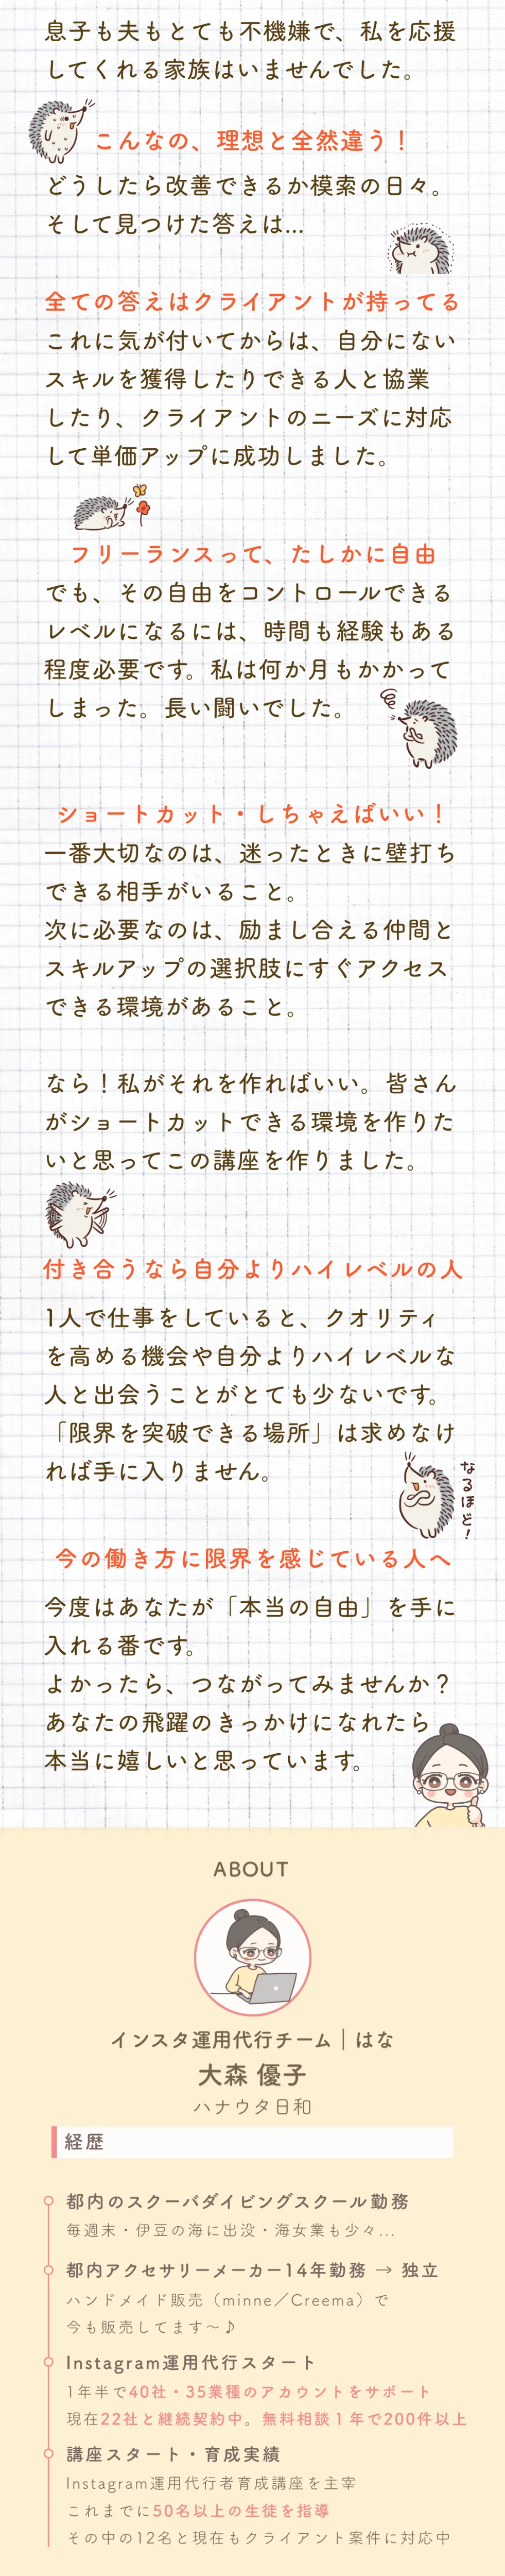 息子も夫もとても不機嫌で、私を応援
してくれる家族はいませんでした。
こんなの、理想と全然違う！
どうしたら改善できるか模索の日々。
そして見つけた答えは...
全ての答えはクライアントが持ってる
これに気が付いてからは、自分にない
スキルを獲得したりできる人と協業
したり、クライアントのニーズに対応
して単価アップに成功しました。
フリーランスって、たしかに自由
でも、その自由をコントロールできる
レベルになるには、時間も経験もある
程度必要です。私は何か月もかかって
しまった。長い闘いでした。
ショートカット・しちゃえばいい！
一番大切なのは、迷ったときに壁打ち
できる相手がいること。
次に必要なのは、励まし合える仲間と
スキルアップの選択肢にすぐアクセス
できる環境があること。
なら！私がそれを作ればいい。皆さん
がショートカットできる環境を作りた
いと思ってこの講座を作りました。
付き合うなら自分よりハイレベルの人
1人で仕事をしていると、クオリティ
を高める機会や自分よりハイレベルな
人と出会うことがとても少ないです。
「限界を突破できる場所」は求めなけ
れば手に入りません。
なるほど！
今の働き方に限界を感じている人へ
今度はあなたが「本当の自由」を手に
入れる番です。
よかったら、つながってみませんか？
あなたの飛躍のきっかけになれたら
本当に嬉しいと思っています。
ABOUT
インスタ運用代行チーム｜はな
大森 優子
ハナウタ日和
経歴
都内のスクーバダイビングスクール勤務
毎週末・伊豆の海に出没・海女業も少々...
都内アクセサリーメーカー14年勤務 → 独立
ハンドメイド販売（minne／Creema）で
今も販売してます～♪
Instagram運用代行スタート
1年半で40社・35業種のアカウントをサポート
現在22社と継続契約中。無料相談１年で200件以上
講座スタート・育成実績
Instagram運用代行者育成講座を主宰
これまでに50名以上の生徒を指導
その中の12名と現在もクライアント案件に対応中